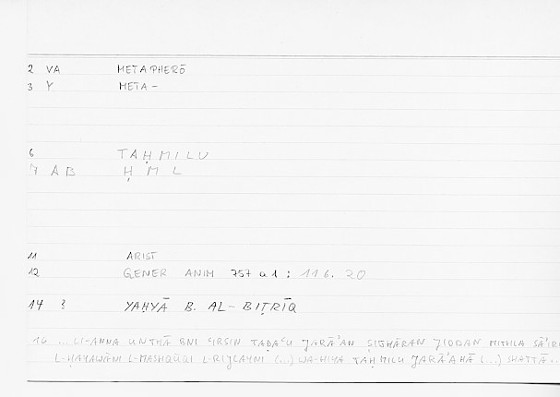 2 VA METAPHERŌ
3 Y META-
6 TAḤMILU
7 AB Ḥ M L
11 ARIST
12 GENER ANIM 757 a 1 : 116. 20
14 ? YAḤYĀ B. AL-BIṬRĪQ
16 ... LI-ANNA UNTHĀ BNI ʿIRSIN JARĀʾAN MITHLA
L-HAYAWĀNI L-MASHQŪQI L-RIJLAYNI (...) WA-HIYA TAḤMILU JARĀʾAHĀ (...) SHATTĀ...